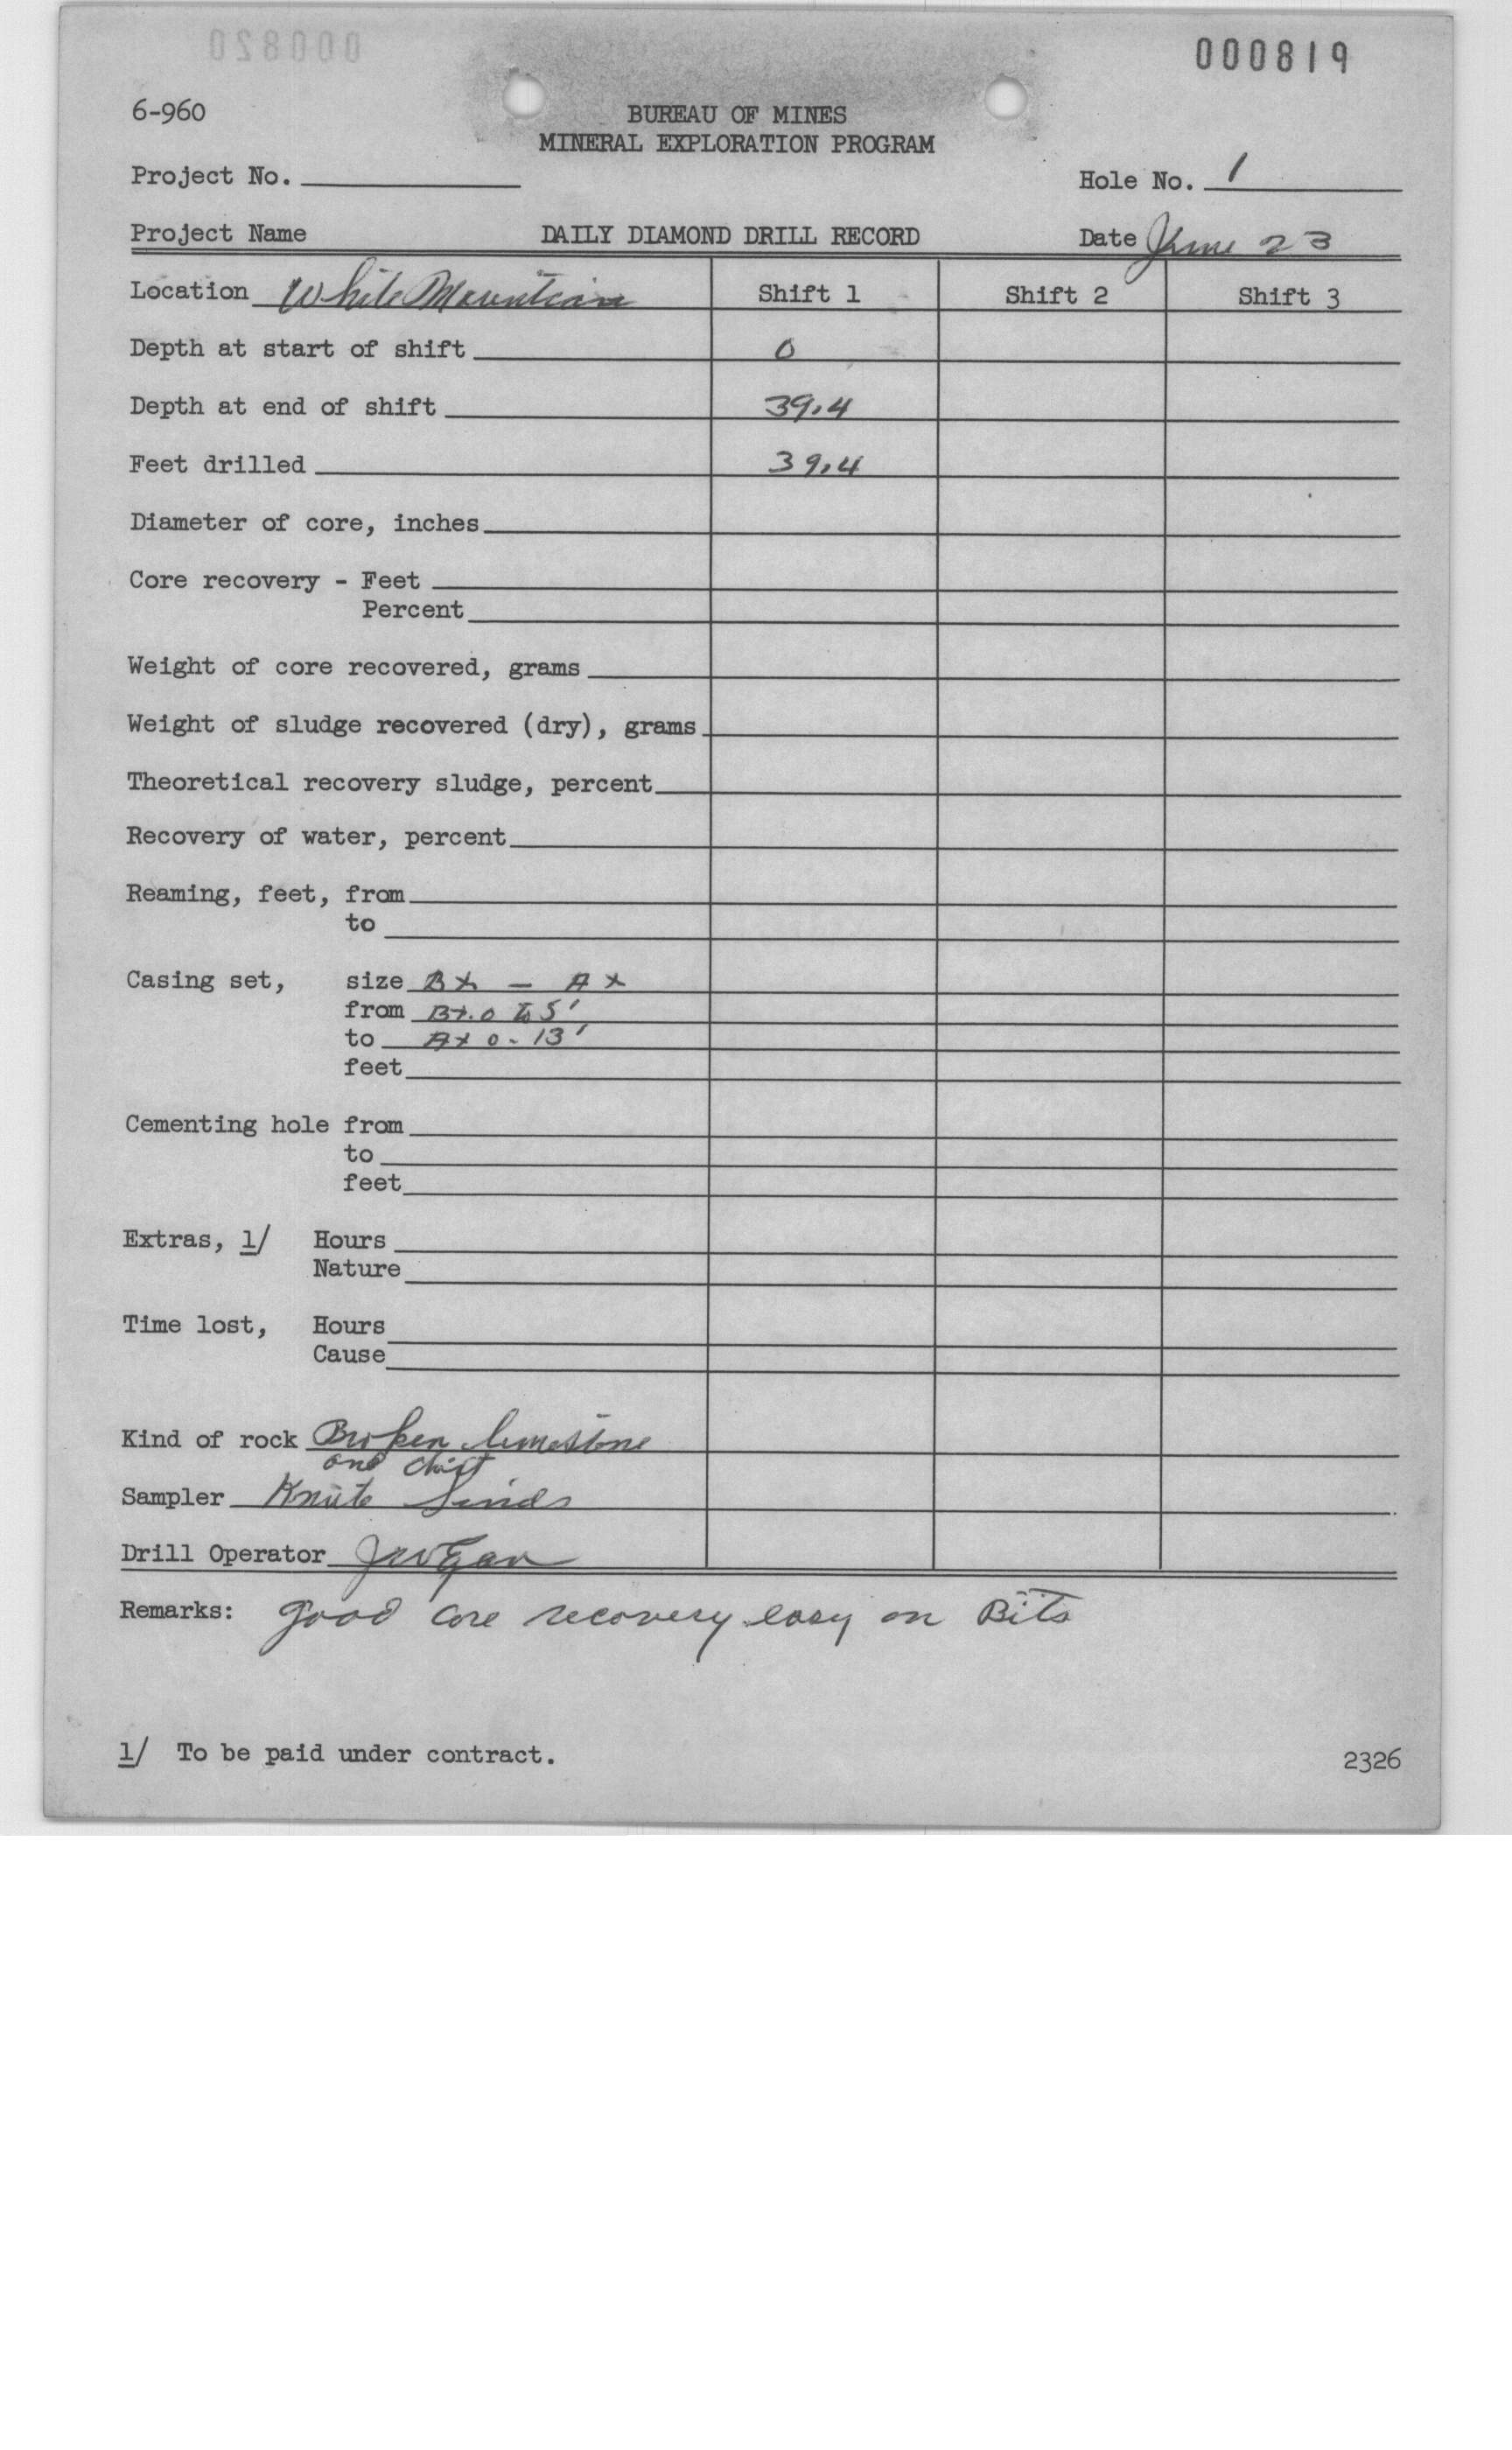 000820
000819
6-960
BUREAU OF MINES
MINERAL EXPLORATION PROGRAM
Project No.
Hole No. 1
Project Name DAILY DIAMOND DRILL RECORD Date June 23
Location White Mountain Shift 1 Shift 2 Shift 3
Depth at start of shift 0
Depth at end of shift 39.4
Feet drilled 39.4
Diameter of core, inches
Core recovery - Feet
Percent
Weight of core recovered, grams
Weight of sludge recovered (dry), grams
Theoretical recovery sludge, percent
Recovery of water, percent
Reaming, feet, from
to
Casing set, size Bx - Ax
from Bx.0 to 5'
to Ax 0-13'
feet
Cementing hole from
to
feet
Extras, 1/ Hours
Nature
Time lost, Hours
Cause
Kind of rock Broken limestone
and
Sampler Knute
Drill Operator JW Egan
Remarks: good core recovery easy on Bits
1/ To be paid under contract.
2326